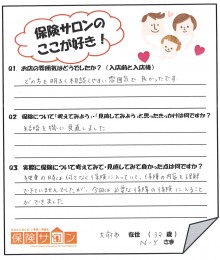 保険サロンの
ここが好き!
Q1 お店の雰囲気はどうでしたか?(入店前と入店後)
どの方も明るく相談しやすい雰囲気で良かったです
Q2 保険について「考えてみよう」・「見直してみよう」と思ったきっかけは何ですか?
結婚を機に見直しました
Q3 実際に保険について考えてみて・見直してみて良かった点は何ですか?
独身の時は何となく保険に入っていて、保険の内容を理解
できていませんでしたが、今回は必要な保障の保険に入ること
ができました
保険サロン
在住 (32歳)
N・Y さま